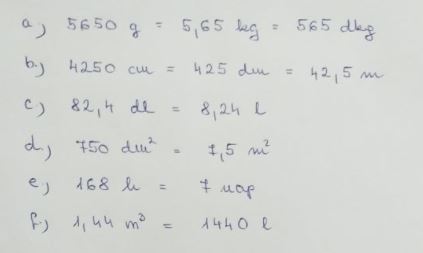 a) 5650 g = 5,65 kg = 565 dkg
b.) 4250 cm = 425 dm = 42,5 m
c) 82,4 dl = 8,24 l
d.) 750 dm² = 7,5 m²
e) 168 h = 7 nap
f.) 1,44 m³ = 1440 l